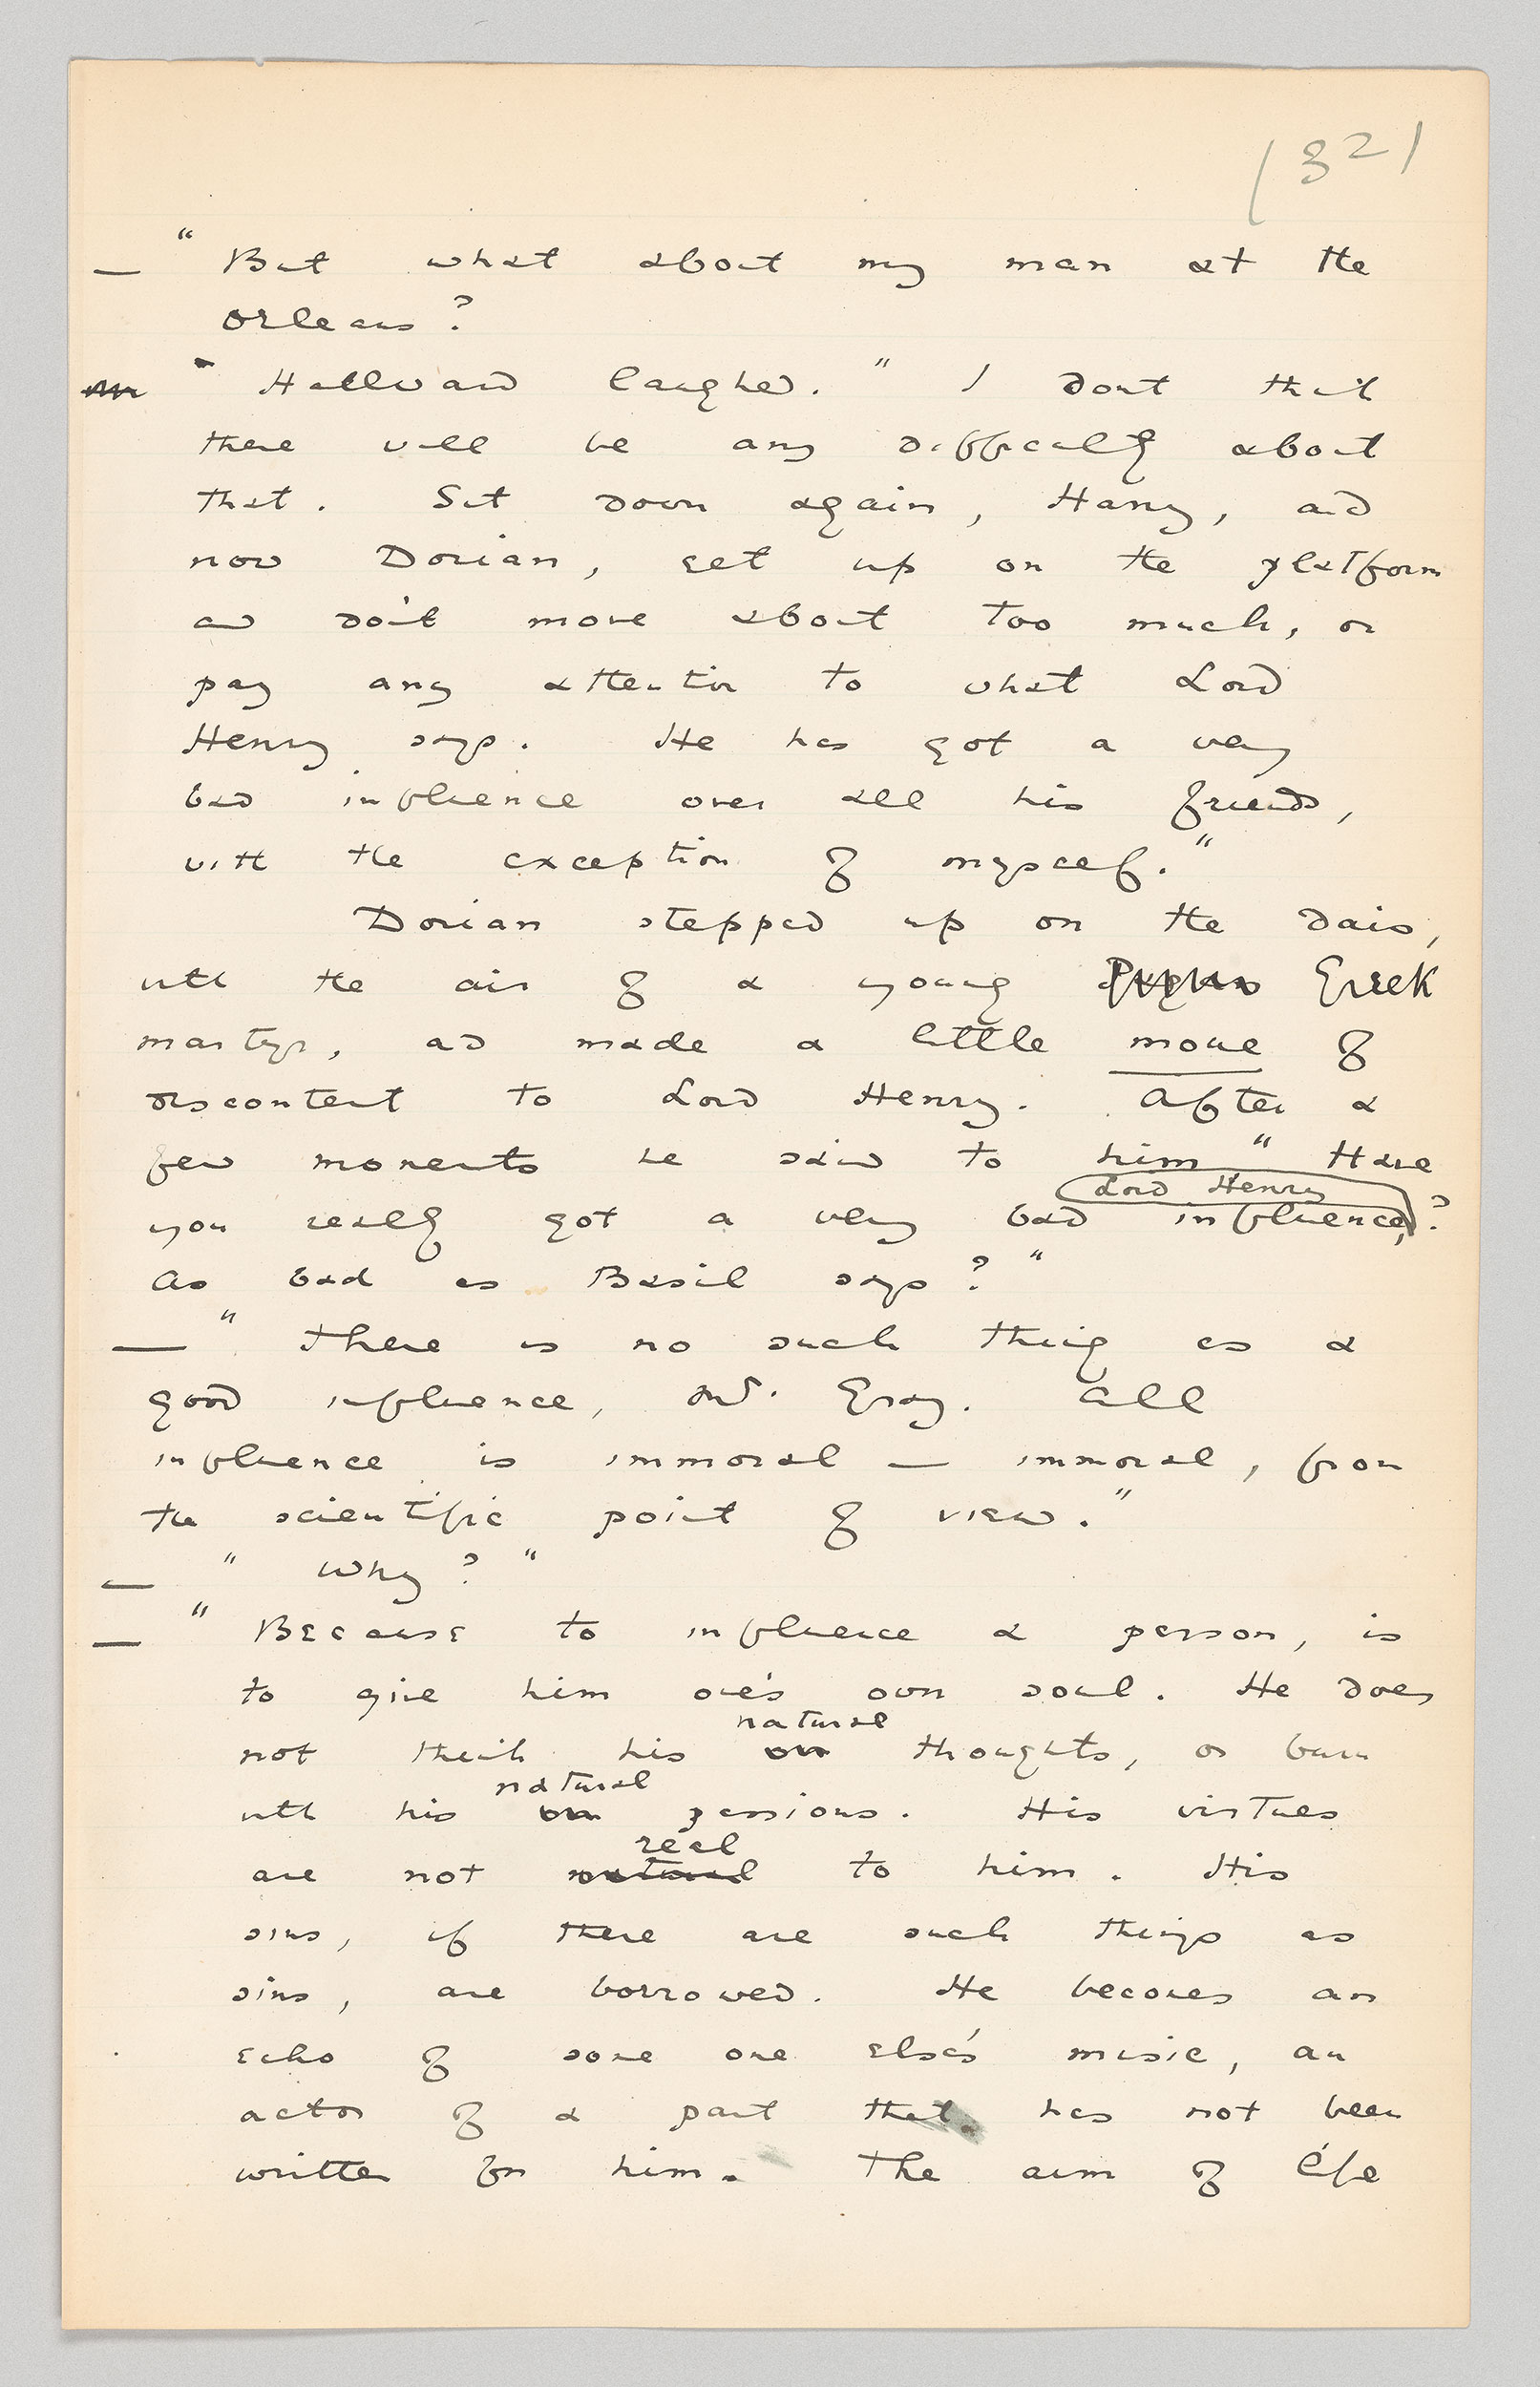 (32)
— " But what about my man at the
Orleans?
Hallward laughed. " I dont think
there will be any difficulty about
that. Sit down again, Harry, and
now Dorian, get up on the platform
and don't move about too much, or
pay any attention to what Lord
Henry says. He has got a very
bad influence over all his friends,
with the exception of myself."
Dorian stepped up on the dais,
with the air of a young Greek
martyr, and made a little moue of
discontent to Lord Henry. After a
few moments he said to him " Have
Lord Henry
you really got a very bad influence, ?
As bad as Basil says?"
— " There is no such thing as a
good influence, Mr. Gray. All
influence is immoral — immoral, from
the scientific point of view."
— " Why? "
— " Because to influence a person, is
to give him one's own soul. He does
natural
not think his own thoughts, or burn
natural
with his own passions. His virtues
real
are not natural to him. His
sins, if there are such things as
sins, are borrowed. He becomes an
echo of some one else's music, an
actor of a part that has not been
written for him. The aim of life